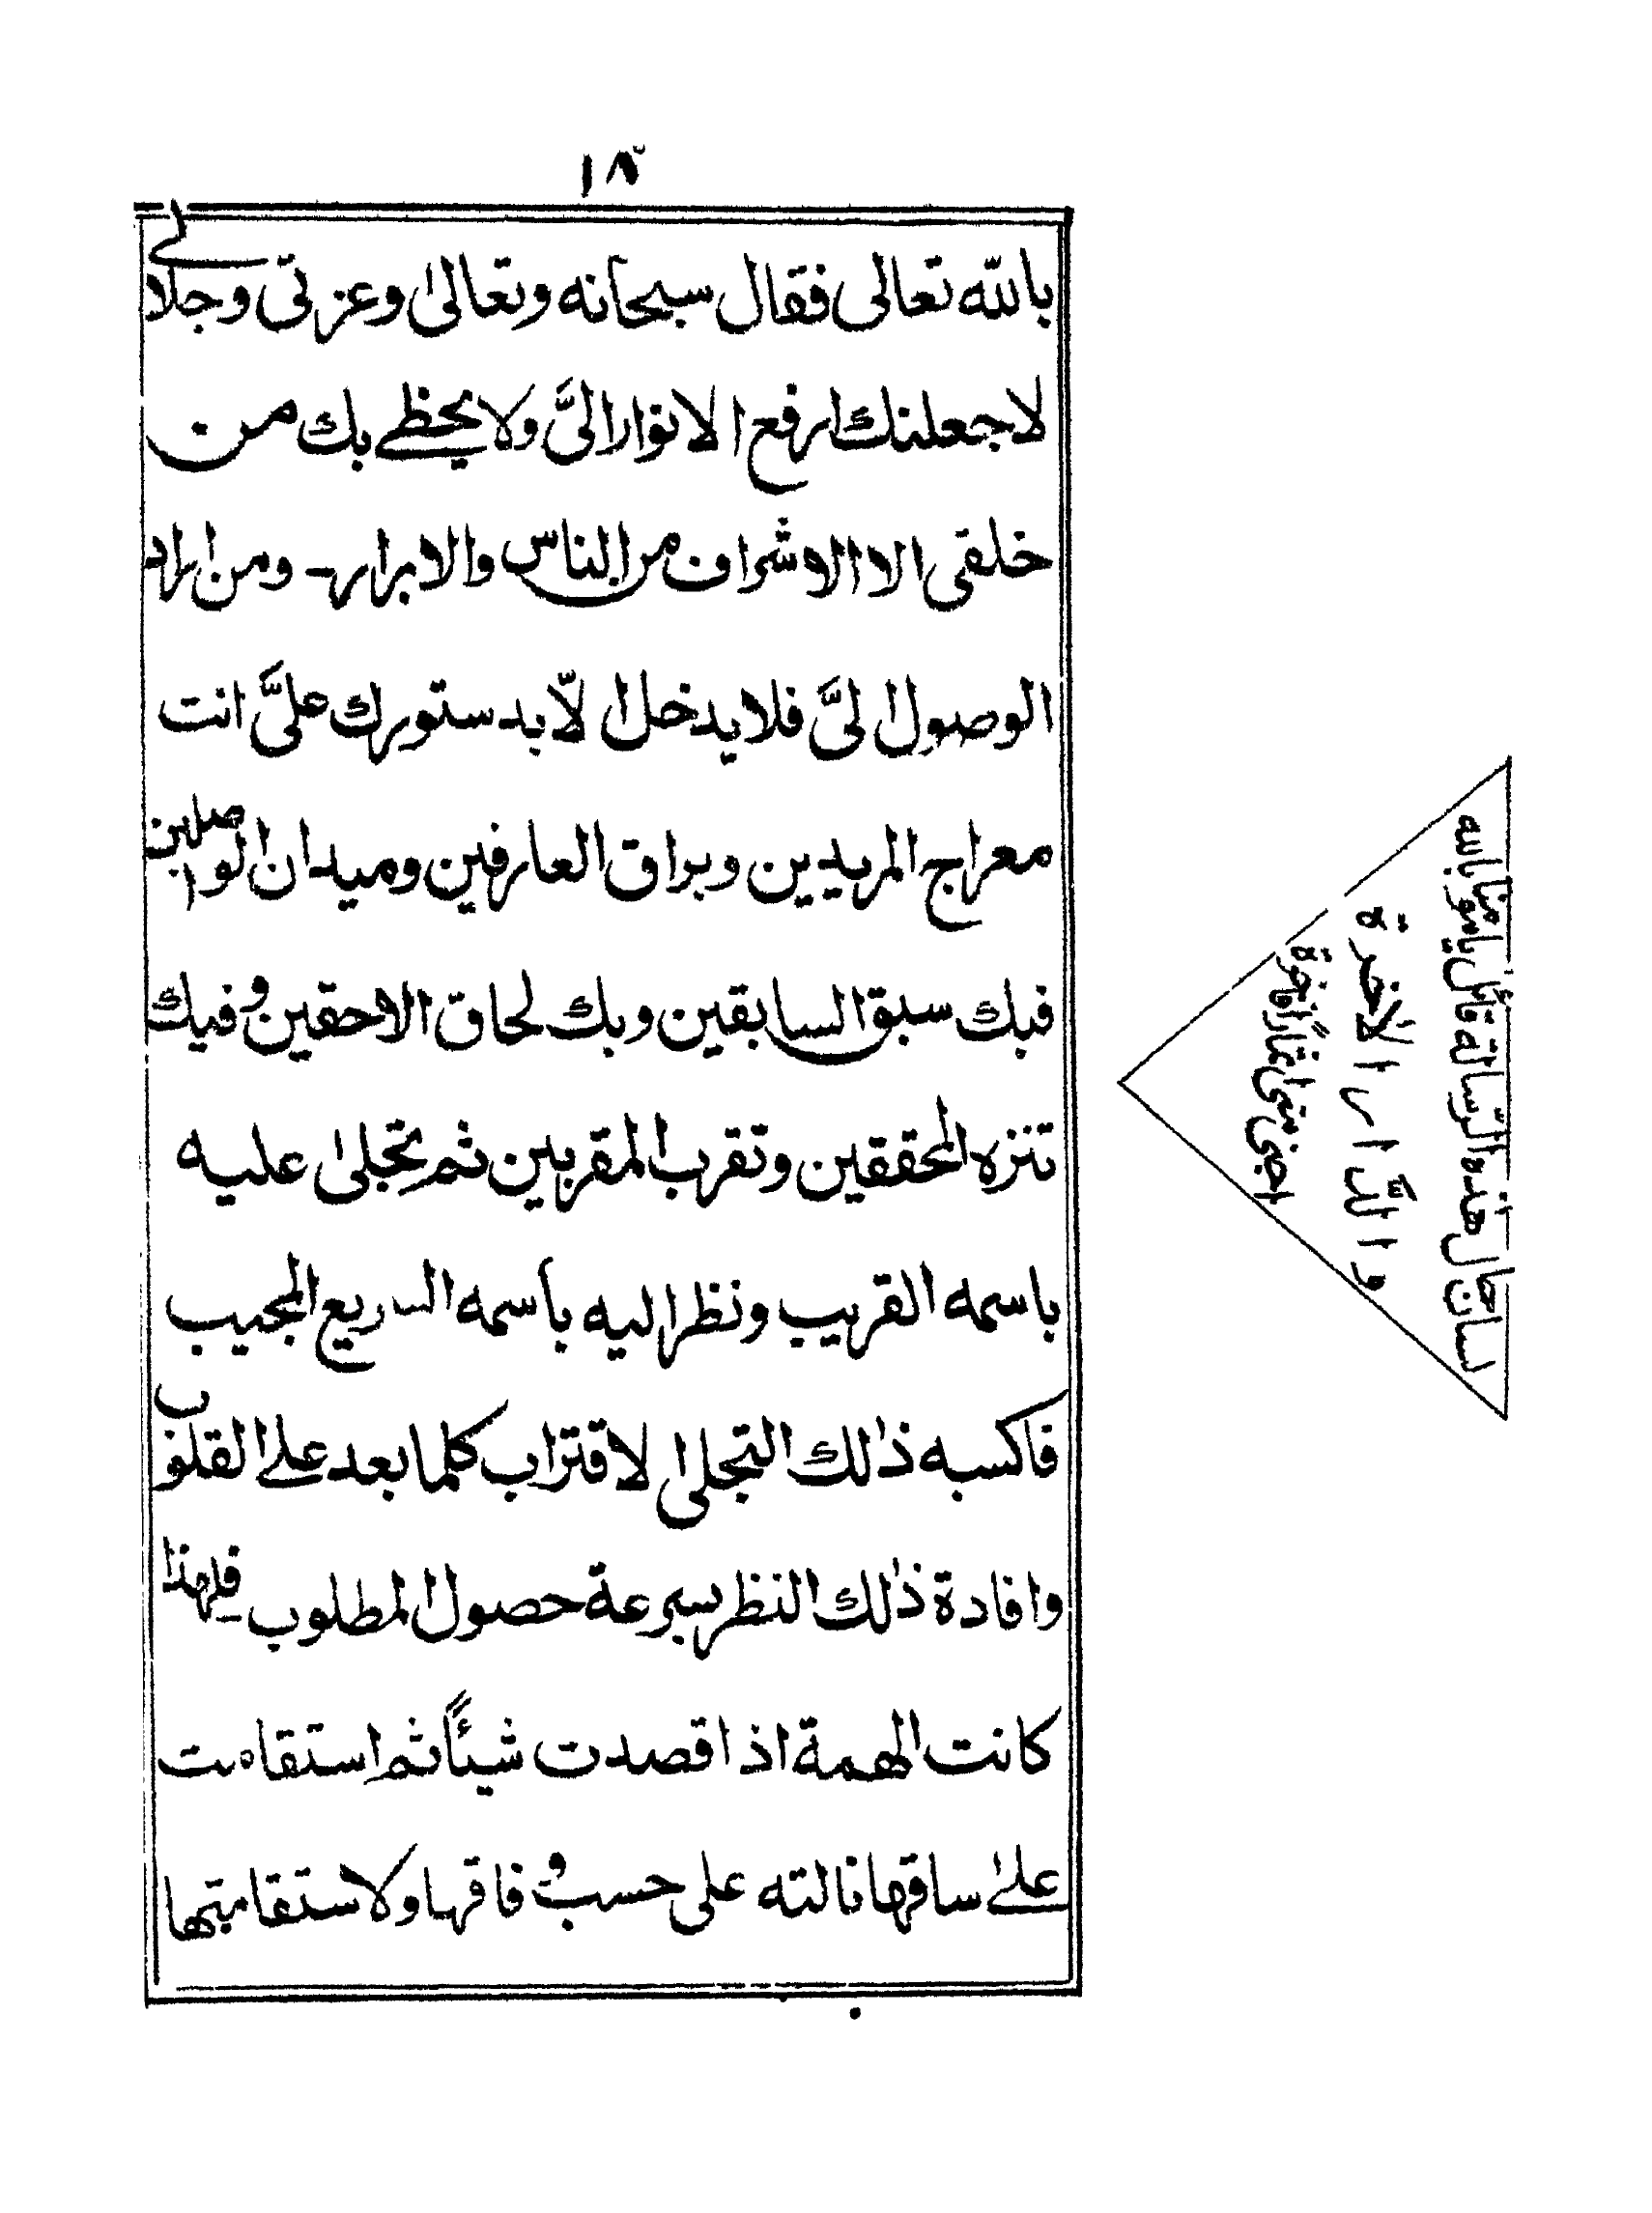 ١٨
بالله تعالى فقال سبحانه وتعالىٰ وعزتى وجلالى
لاجعلنك ارفع الانوار الىَّ ولا يحظے بك من
خلقى الا الاشراف من الناس والابرار۔ ومن اراد
الوصول الىَّ فلا يدخل الّا بدستورك علىَّ انت
معراج المريدين وبراق العارفين وميدان الواصلين
فبك سبق السابقين وبك لحاق الاحقين وفيك
تنزه المحققين وتقرب المقربين ثم تجلىٰ عليه
باسمه القريب ونظر اليه باسمه السريع المجيب
فاكسبه ذٰلك التجلى الاقتراب كلما بعد علے القلوب
وافادة ذٰلك النظر سرعة حصول المطلوب فلهذا
كانت الهمة اذا قصدت شيئًا ثم استقامت
علےٰ ساقها نالته على حسب وفاقها ولاستقامتها
لسان حال هٰذه الرّسالة قائل يا مؤمنًا بالله
و الدَّار الاٰخرة